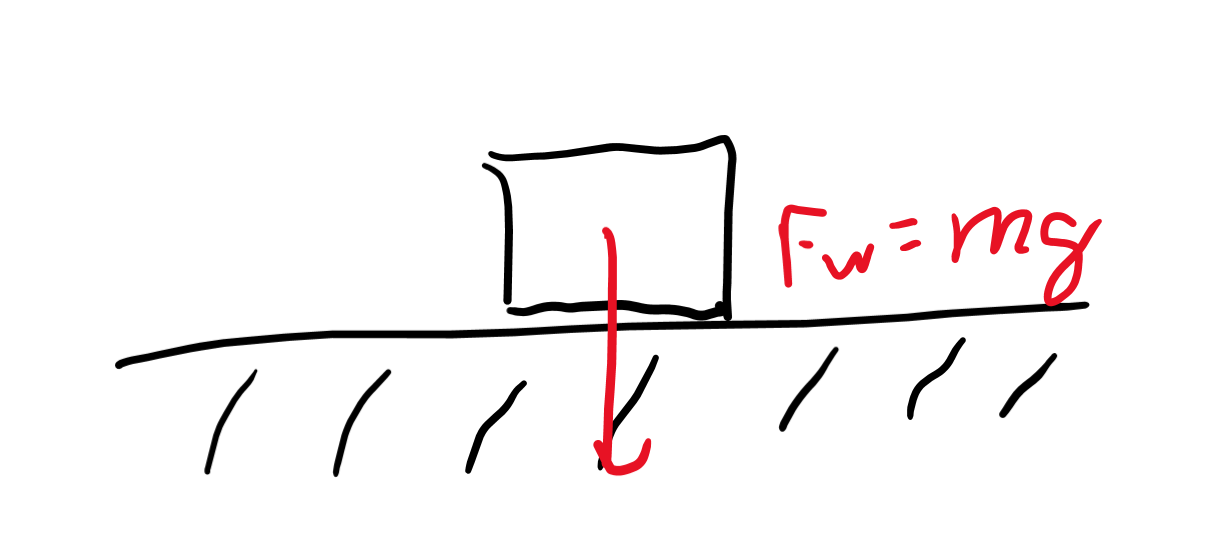 Fw = mg